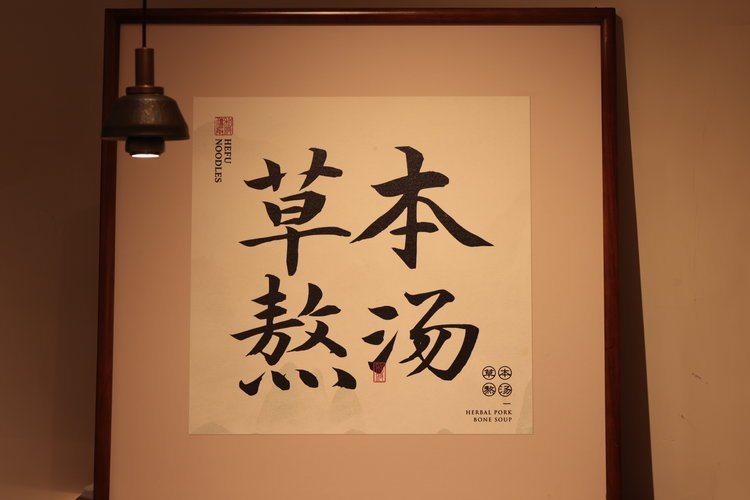 HEFU
NOODLES
草本
熬汤
草本
熬汤
HERBAL PORK
BONE SOUP